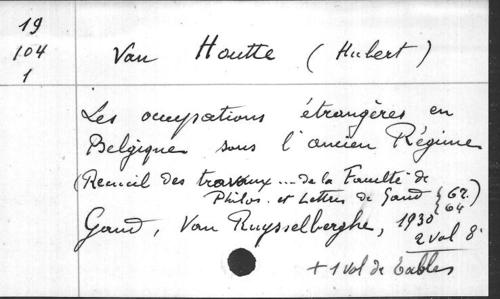 19
104
1
Van Houtte (Hubert)
Les occupations étrangères en
Belgique sous l'ancien Régime
(Recueil des travaux ... de la Faculté de
Philos. et Lettres de Gand { 62. )
{ 64
Gand, Van Ruysselberghe, 1930
2 vol 8°
+ 1 vol de tables